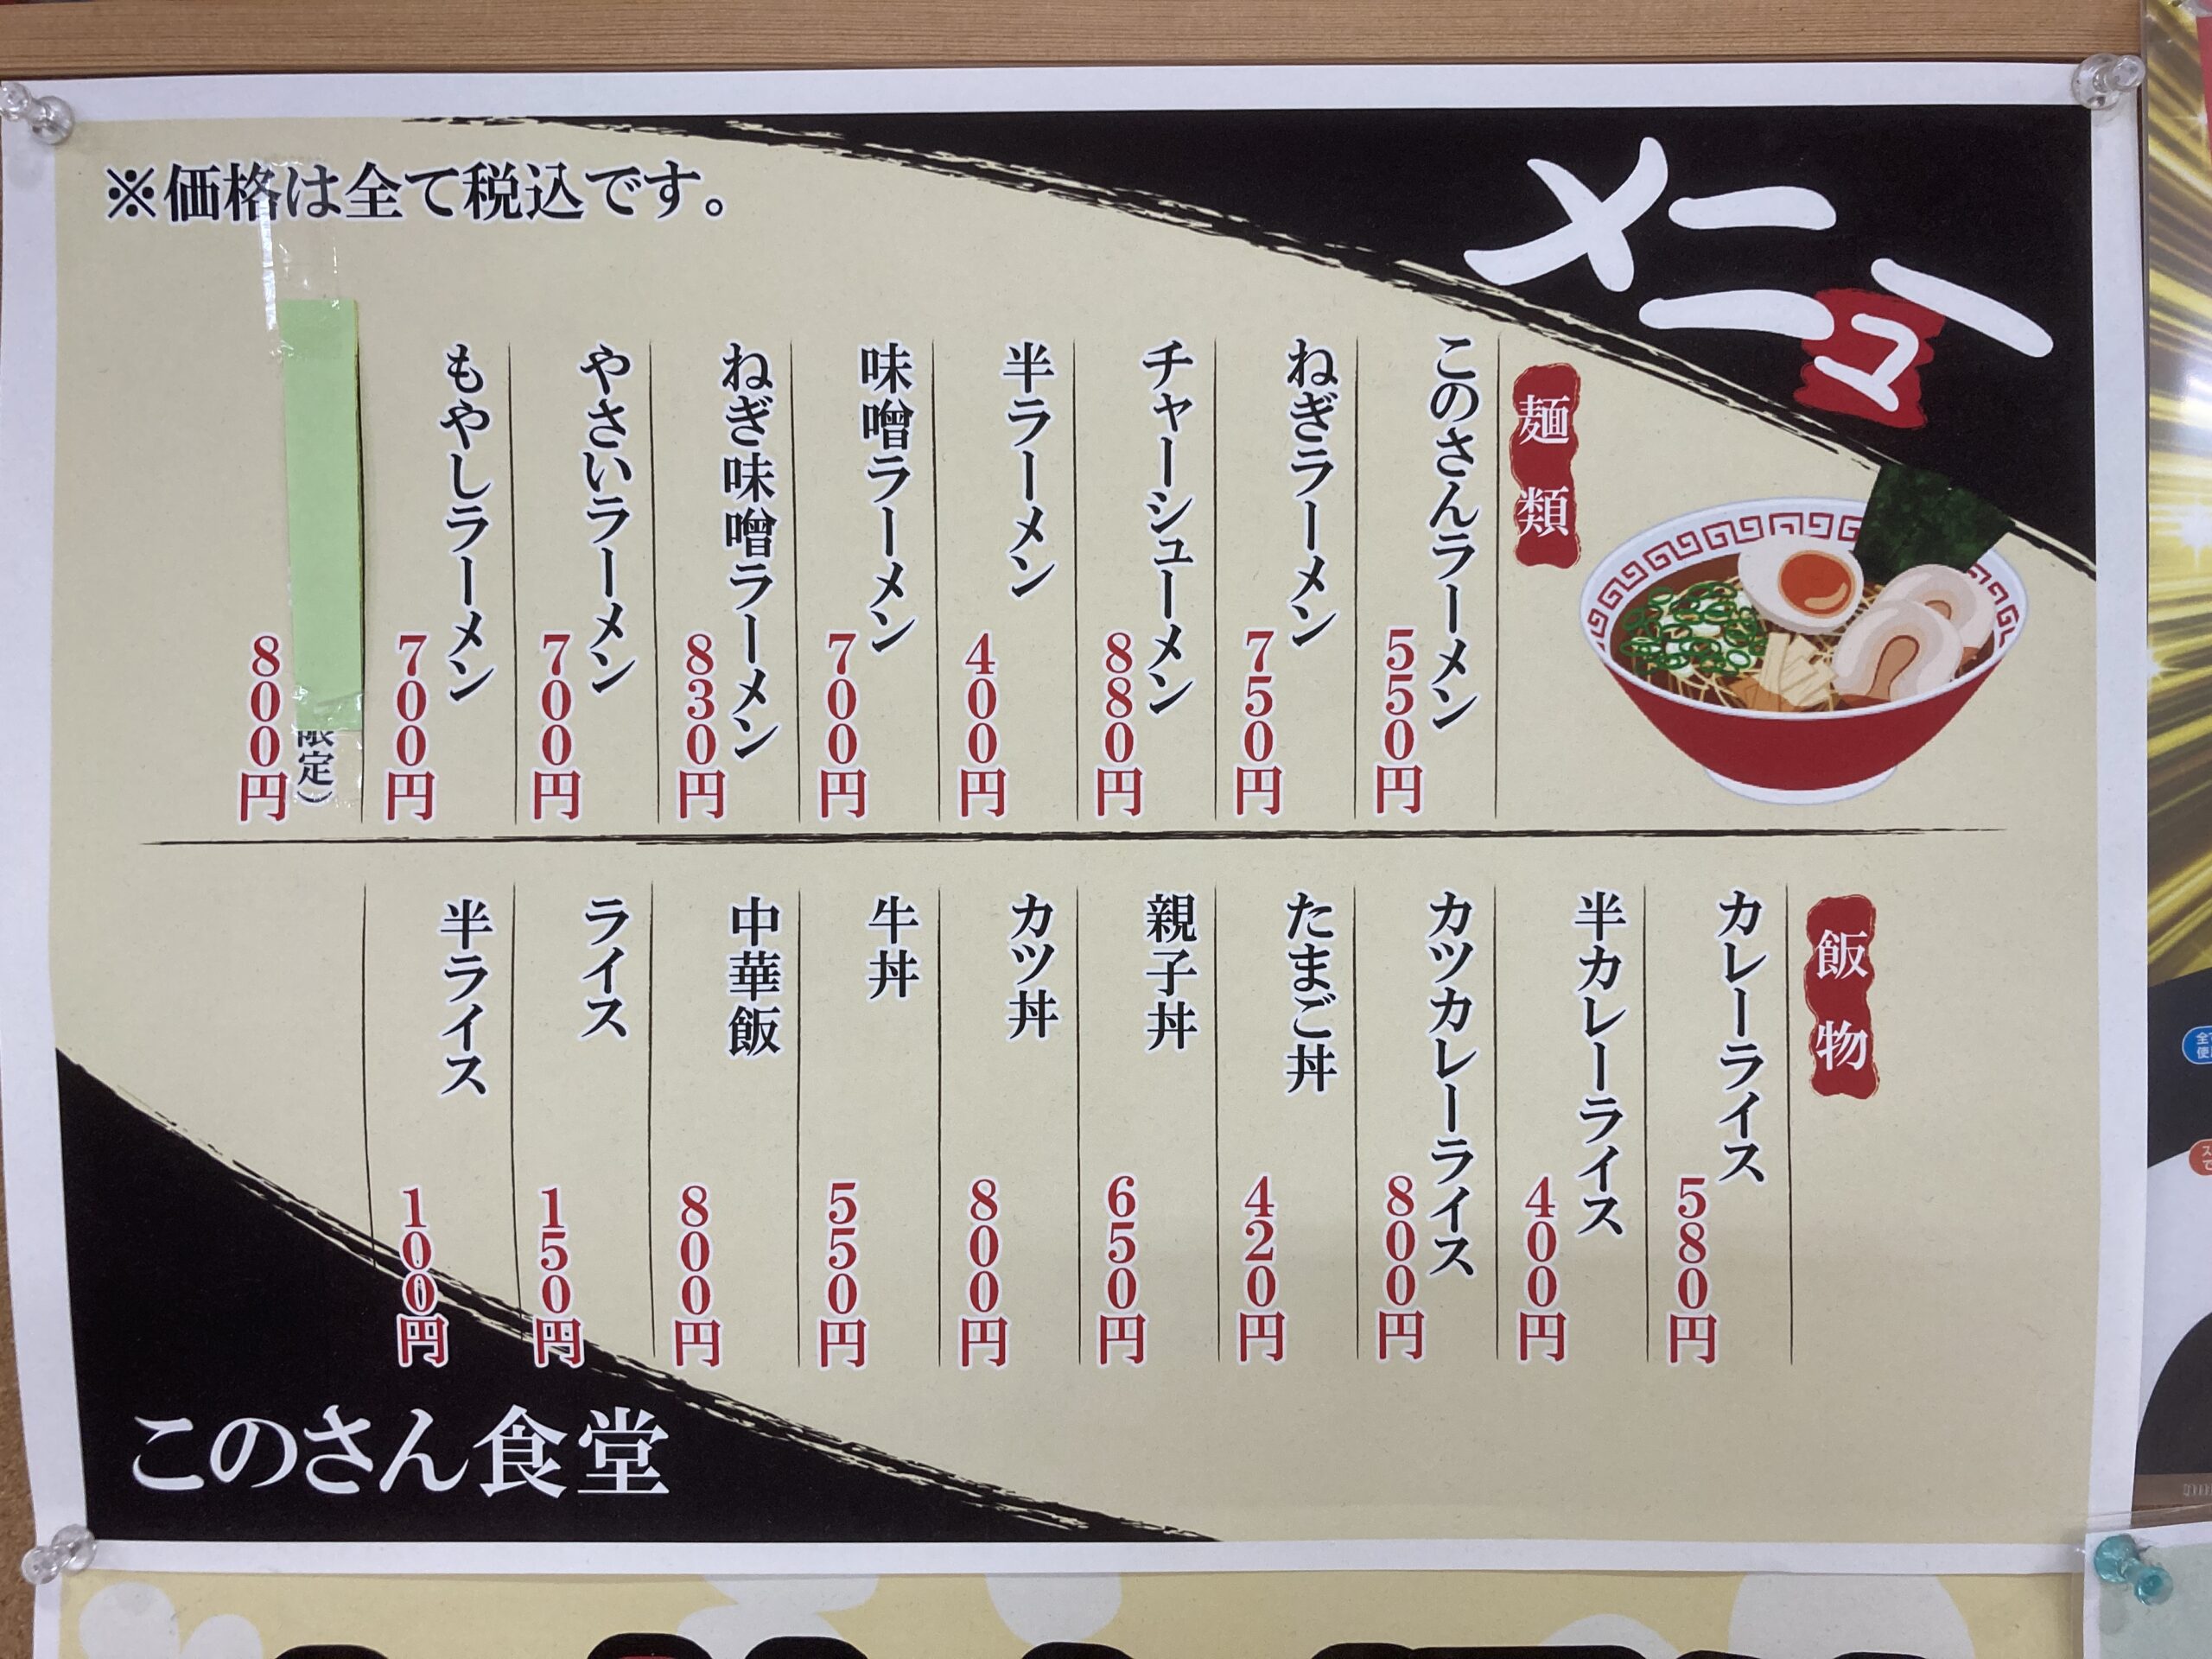 メニュー
※価格は全て税込です。
麺類
このさんラーメン 550円
ねぎラーメン 750円
チャーシューメン 880円
半ラーメン 400円
味噌ラーメン 700円
ねぎ味噌ラーメン 830円
やさいラーメン 700円
もやしラーメン 700円
限定） 800円
飯物
カレーライス 580円
半カレーライス 400円
カツカレーライス 800円
たまご丼 420円
親子丼 650円
カツ丼 800円
牛丼 550円
中華飯 800円
ライス 150円
半ライス 100円
このさん食堂